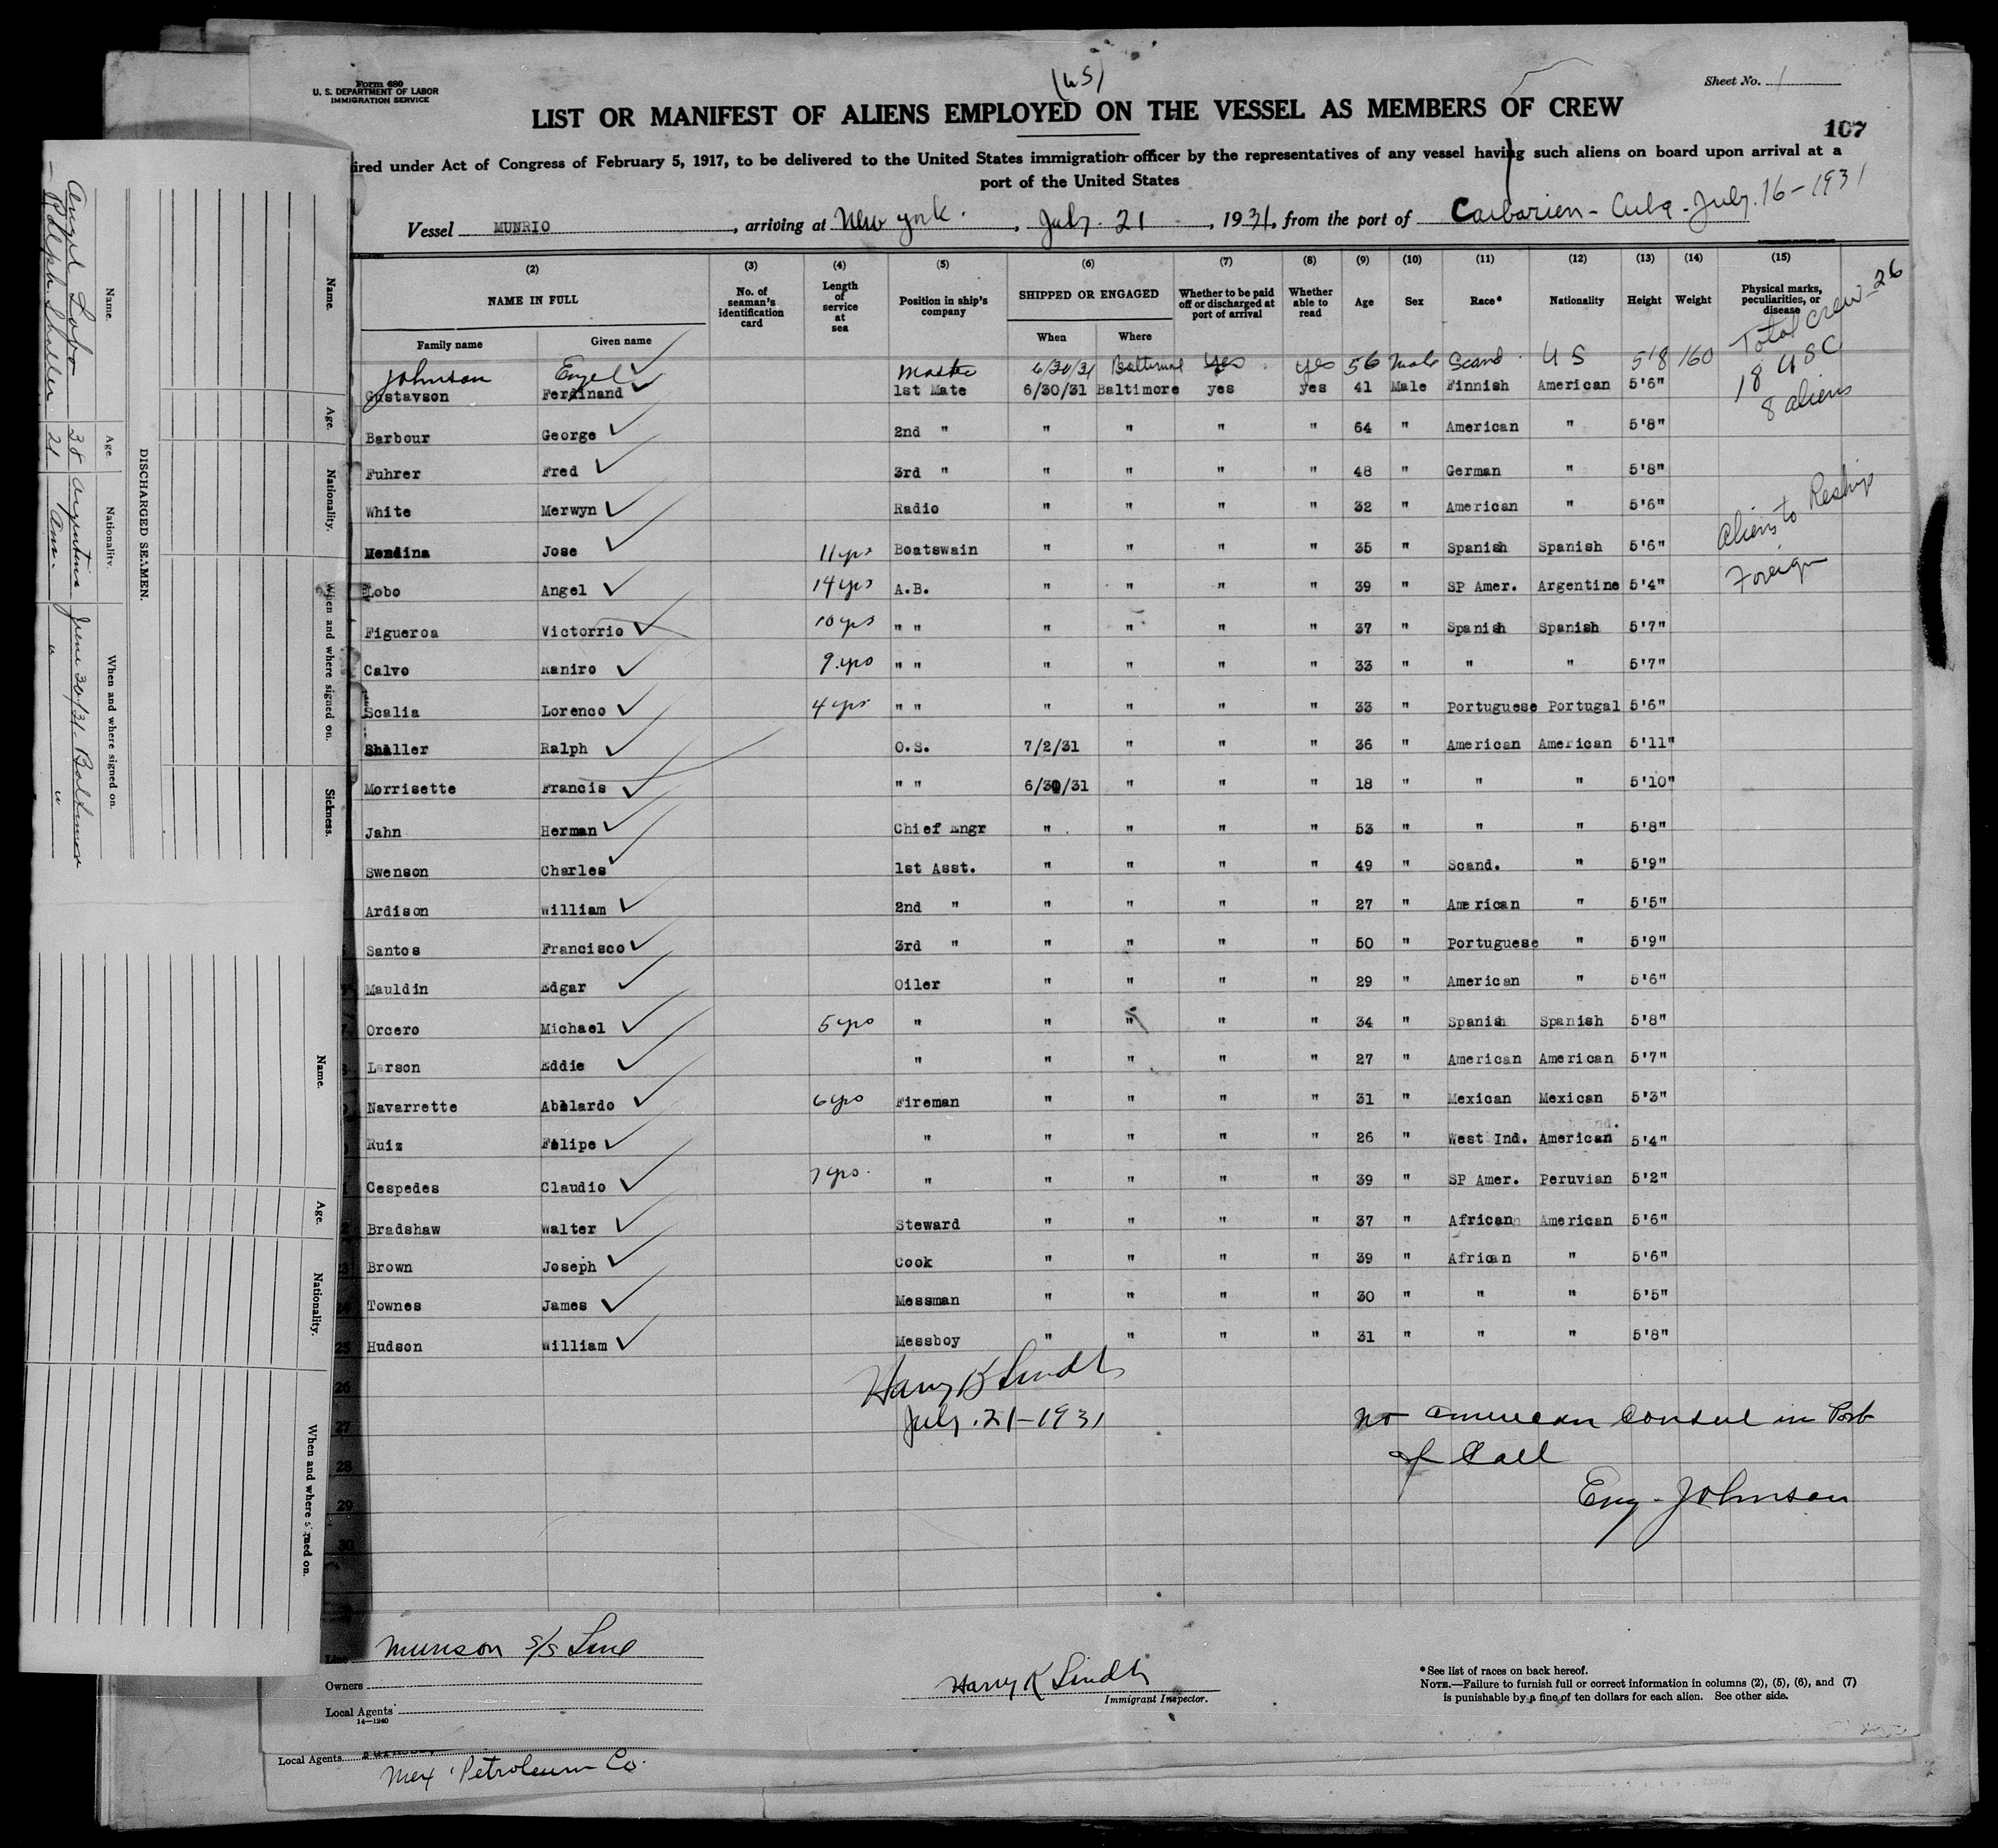 Form 680
U. S. DEPARTMENT OF LABOR
IMMIGRATION SERVICE
(US)
Sheet No. 1
LIST OR MANIFEST OF ALIENS EMPLOYED ON THE VESSEL AS MEMBERS OF CREW
107
ired under Act of Congress of February 5, 1917, to be delivered to the United States immigration officer by the representatives of any vessel having such aliens on board upon arrival at a
port of the United States
Vessel MUNRIO, arriving at New York, July 21, 1931, from the port of Caibarien - Cuba - July 16 - 1931
(2) (3) (4) (5) (6) (7) (8) (9) (10) (11) (12) (13) (14) (15)
NAME IN FULL No. of seaman's identification card Length of service at sea Position in ship's company SHIPPED OR ENGAGED Whether to be paid off or discharged at port of arrival Whether able to read Age Sex Race* Nationality Height Weight Physical marks, peculiarities, or disease
Family name Given name When Where
Total Crew 26
18 USC
8 aliens
Johnson Engel Master 6/30/31 Baltimore yes yes 56 Male Scand. US 5'8 160
Gustavson Ferdinand 1st Mate 6/30/31 Baltimore yes yes 41 Male Finnish American 5'6"
Barbour George 2nd " " " " " 64 " American " 5'8"
Fuhrer Fred 3rd " " " " " 48 " German " 5'8"
White Merwyn Radio " " " " 32 " American " 5'6"
Aliens to Reship
Foreign
Mendina Jose 11 yrs Boatswain " " " " 35 " Spanish Spanish 5'6"
Lobo Angel 14 yrs A.B. " " " " 39 " SP Amer. Argentine 5'4"
Figueroa Victorrio 10 yrs " " " " " " 37 " Spanish Spanish 5'7"
Calvo Raniro 9 yrs " " " " " " 33 " " " 5'7"
Scalia Lorenco 4 yrs " " " " " " 33 " Portuguese Portugal 5'6"
Shaller Ralph O.S. 7/2/31 " " " 36 " American American 5'11"
Morrisette Francis " " 6/30/31 " " " 18 " " " 5'10"
Jahn Herman Chief Engr " " " " 53 " " " 5'8"
Swenson Charles 1st Asst. " " " " 49 " Scand. " 5'9"
Ardison William 2nd " " " " " 27 " American " 5'5"
Santos Francisco 3rd " " " " " 50 " Portuguese " 5'9"
Mauldin Edgar Oiler " " " " 29 " American " 5'6"
Orcero Michael 5 yrs " " " " " 34 " Spanish Spanish 5'8"
Larson Eddie " " " " " 27 " American American 5'7"
Navarrette Abelardo 6 yrs Fireman " " " " 31 " Mexican Mexican 5'3"
Ruiz Felipe " " " " " 26 " West Ind. American 5'4"
Cespedes Claudio 7 yrs " " " " " 39 " SP Amer. Peruvian 5'2"
Bradshaw Walter Steward " " " " 37 " African American 5'6"
Brown Joseph Cook " " " " 39 " African " 5'6"
Townes James Messman " " " " 30 " " " 5'5"
25 Hudson William Messboy " " " " 31 " " " 5'8"
26
27
28
29
30
Harry K Lindh
July 21 - 1931
No American Consul in Port
of Call
Eng. Johnson
Line Munson S/S Line
Owners
Local Agents
14—1240
Harry K Lindh
Immigrant Inspector.
*See list of races on back hereof.
NOTE.—Failure to furnish full or correct information in columns (2), (5), (6), and (7)
is punishable by a fine of ten dollars for each alien. See other side.
Local Agents
Mex Petroleum Co.
DISCHARGED SEAMEN.
Name. Age. Nationality. When and where signed on. Sickness.
Name. Age. Nationality. When and where signed on.
Angel Lobo 38 Argentine June 30/31 Baltimore
Ralph Shaller 21 Am. " "
Name. Age. Nationality. When and where signed on.